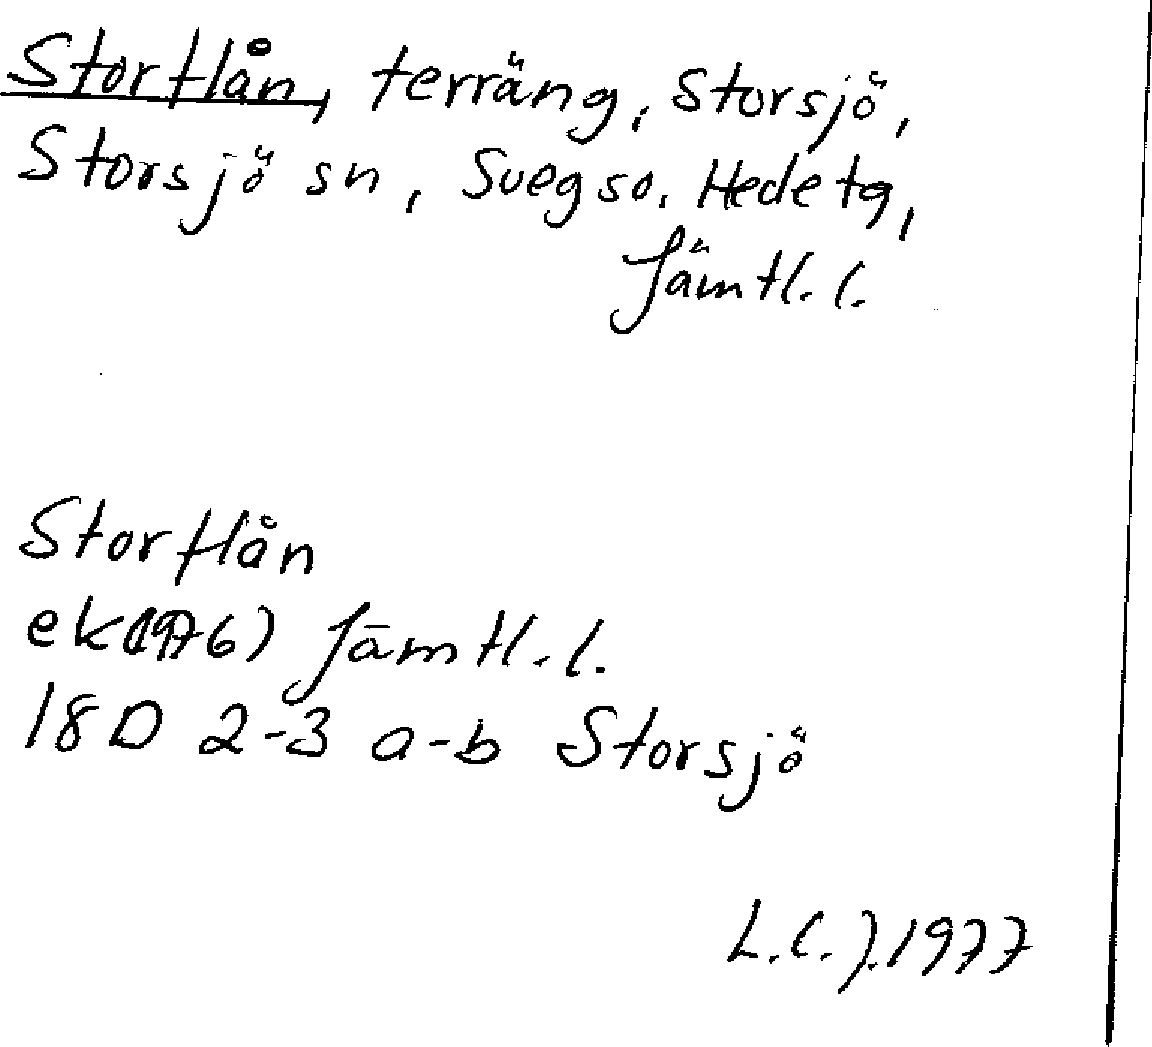 Storflån, terräng, Storsjö,
Storsjö sn, Sveg so. Hede tg,
Jämtl. l.
Storflån
ek(1976) Jämtl. l.
18D 2-3 a-b Storsjö
L.C.J. 1977